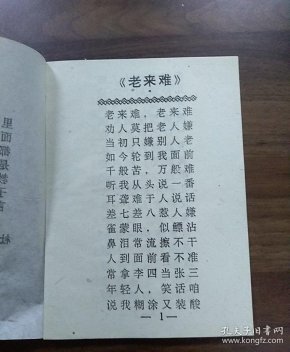 《老来难》
老来难，老来难
劝人莫把老人嫌
当初只嫌别人老
如今轮到我面前
千般苦，万般难
听我从头说一番
耳聋难于人说话
差七差八惹人嫌
雀蒙眼，似鳔沾
鼻泪常流擦不干
人到面前看不准
常拿李四当张三
年轻人，笑话咱
说我糊涂又装酸
—1—
孔夫子旧书网